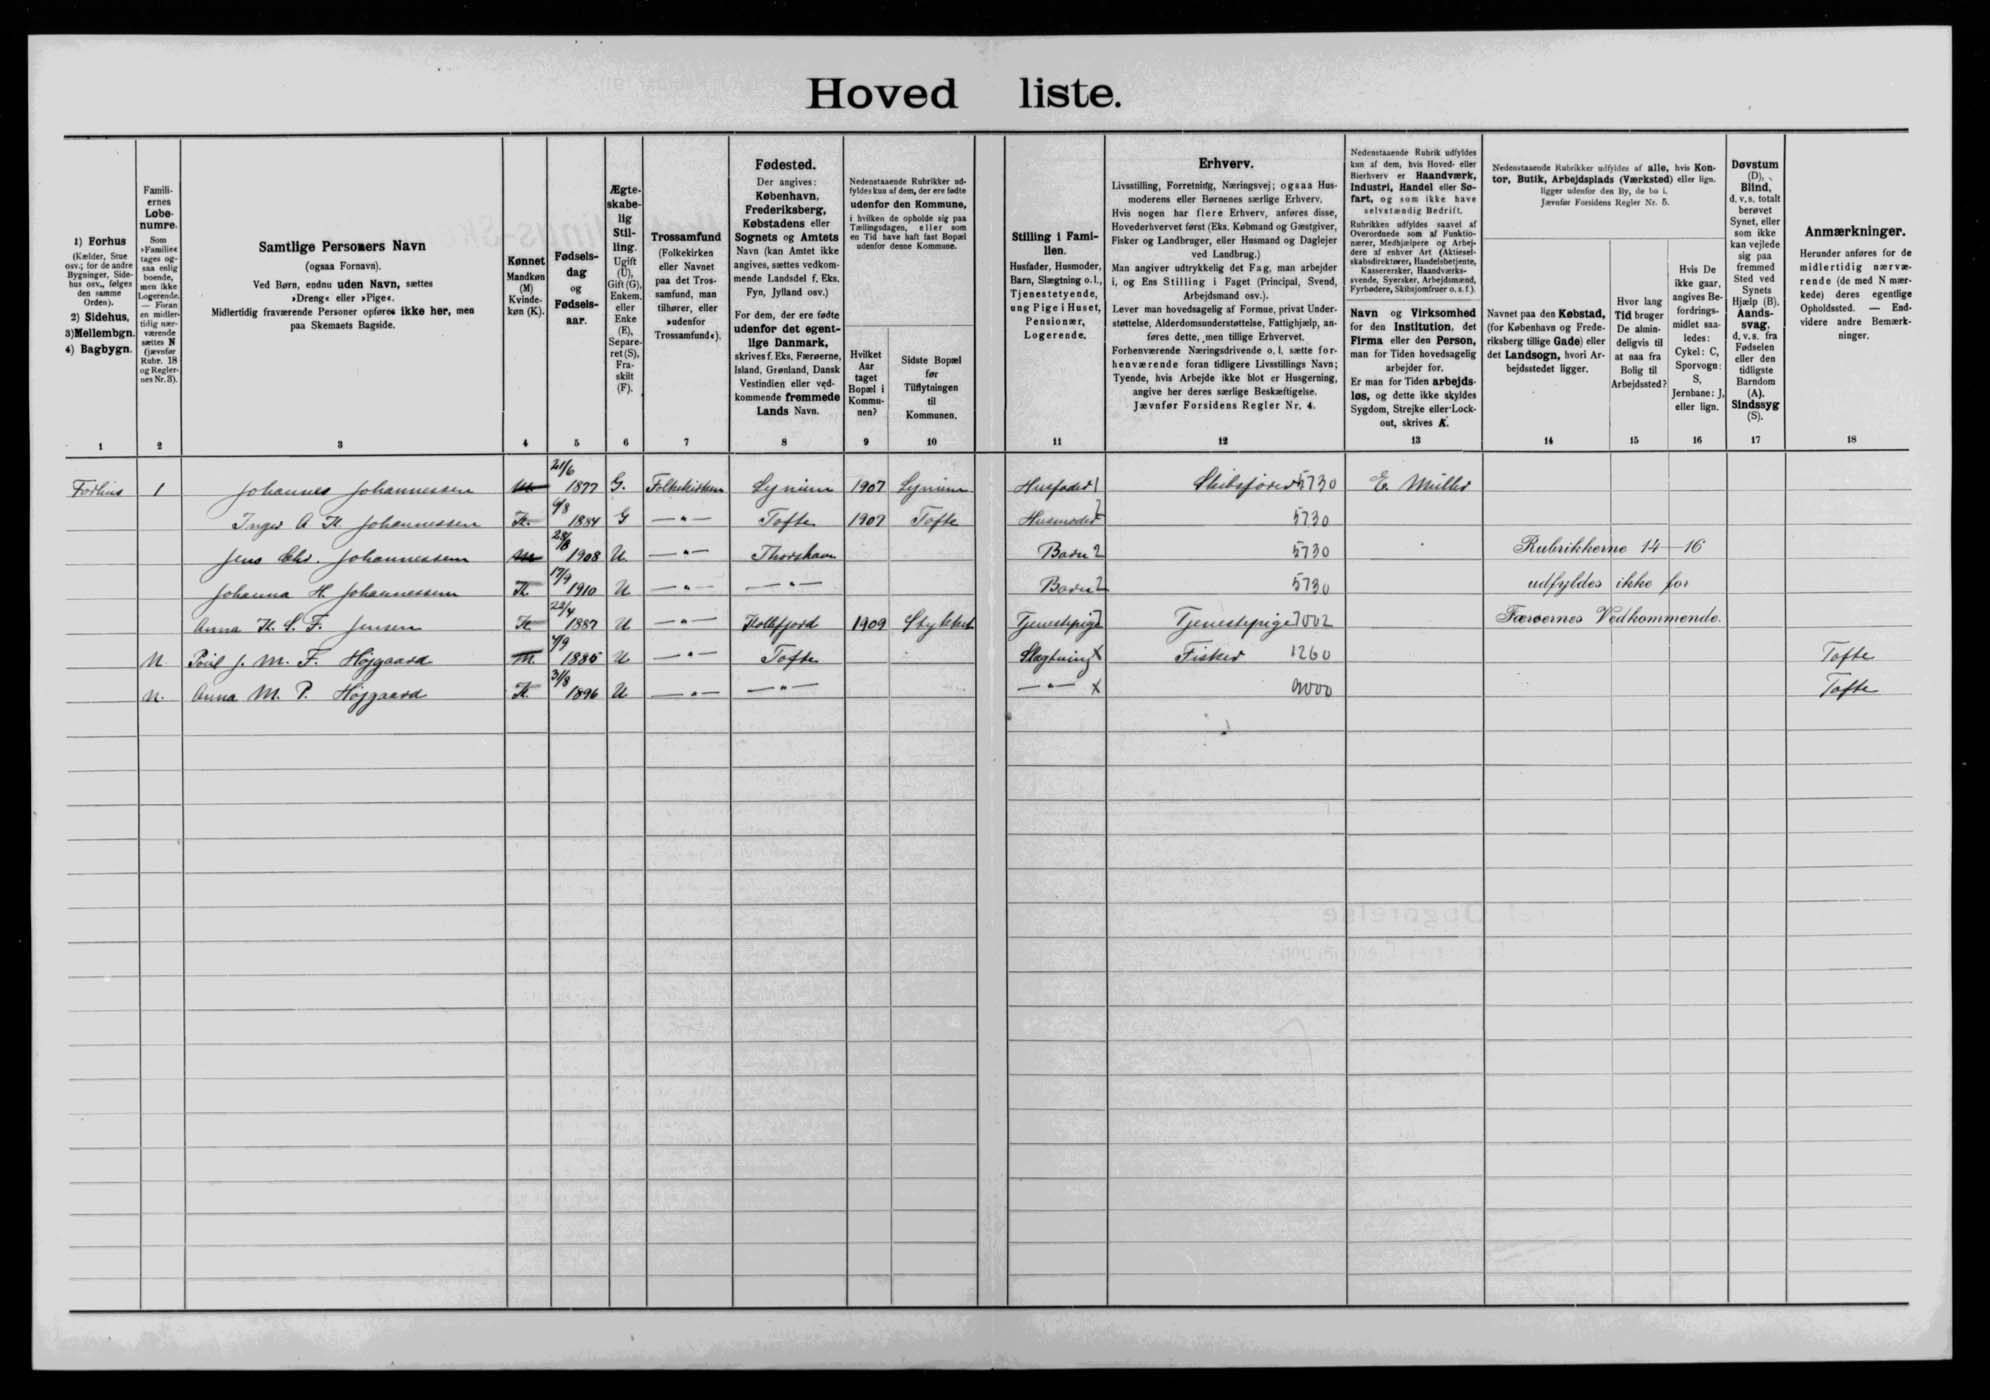 Hovedliste.
1) Forhus
(Kælder, Stue
osv.; for de andre
Bygninger, Side-
hus osv., følges
den samme
Orden).
2) Sidehus,
3) Mellembgn.
4) Bagbygn.
Famili-
ernes
Løbe-
numre.
Som
»Familie«
tages og-
saa enlig
boende,
men ikke
Logerende.
— Foran
en midler-
tidig nær-
værende
sættes N
(jævnfør
Rubr. 18
og Regler-
nes Nr. 3).
Samtlige Personers Navn
(ogsaa Fornavn).
Ved Børn, endnu uden Navn, sættes
»Dreng« eller »Pige«.
Midlertidig fraværende Personer opføres ikke her, men
paa Skemaets Bagside.
Kønnet
Mandkøn
(M)
Kvinde-
køn (K).
Fødsels-
dag
og
Fødsels-
aar.
Ægte-
skabe-
lig
Stil-
ling.
Ugift
(U),
Gift (G),
Enkem.
eller
Enke
(E),
Separe-
ret (S),
Fra-
skilt
(F).
Trossamfund
(Folkekirken
eller Navnet
paa det Tros-
samfund, man
tilhører, eller
»udenfor
Trossamfund«).
Fødested.
Der angives:
København,
Frederiksberg,
Købstadens eller
Sognets og Amtets
Navn (kan Amtet ikke
angives, sættes vedkom-
mende Landsdel f. Eks.
Fyn, Jylland osv.)
For dem, der ere fødte
udenfor det egent-
lige Danmark,
skrives f. Eks. Færøerne,
Island, Grønland, Dansk
Vestindien eller ved-
kommende fremmede
Lands Navn.
Nedenstaaende Rubrikker ud-
fyldes kun af dem, der ere fødte
udenfor den Kommune,
i hvilken de opholde sig paa
Tællingsdagen, eller som
en Tid have haft fast Bopæl
udenfor denne Kommune.
Hvilket
Aar
taget
Bopæl i
Kommu-
nen?
Sidste Bopæl
før
Tilflytningen
til
Kommunen.
Stilling i Fami-
lien.
Husfader, Husmoder,
Barn, Slægtning o. l.,
Tjenestetyende,
ung Pige i Huset,
Pensionær,
Logerende.
Erhverv.
Livsstilling, Forretning, Næringsvej; ogsaa Hus-
moderens eller Børnenes særlige Erhverv.
Hvis nogen har flere Erhverv, anføres disse,
Hovederhvervet først (Eks. Købmand og Gæstgiver,
Fisker og Landbruger, eller Husmand og Daglejer
ved Landbrug.)
Man angiver udtrykkelig det Fag, man arbejder
i, og Ens Stilling i Faget (Principal, Svend,
Arbejdsmand osv.).
Lever man hovedsagelig af Formue, privat Under-
støttelse, Alderdomsunderstøttelse, Fattighjælp, an-
føres dette, men tillige Erhvervet.
Forhenværende Næringsdrivende o. l. sætte for-
henværende foran tidligere Livsstillings Navn;
Tyende, hvis Arbejde ikke blot er Husgerning,
angive her deres særlige Beskæftigelse.
Jævnfør Forsidens Regler Nr. 4.
Nedenstaaende Rubrik udfyldes
kun af dem, hvis Hoved- eller
Bierhverv er Haandværk,
Industri, Handel eller Sø-
fart, og som ikke have
selvstændig Bedrift.
Rubrikken udfyldes saavel af
Overordnede som af Funktio-
nærer, Medhjælpere og Arbej-
dere af enhver Art (Aktiesel-
skabsdirektører, Handelsbetjente,
Kasserersker, Haandværks-
svende, Syersker, Arbejdsmænd,
Fyrbødere, Skibsjomfruer o. s. f.).
Navn og Virksomhed
for den Institution, det
Firma eller den Person,
man for Tiden hovedsagelig
arbejder for.
Er man for Tiden arbejds-
løs, og dette ikke skyldes
Sygdom, Strejke eller Lock-
out, skrives A.
Nedenstaaende Rubrikker udfyldes af alle, hvis Kon-
tor, Butik, Arbejdsplads (Værksted) eller lign.
ligger udenfor den By, de bo i.
Jævnfør Forsidens Regler Nr. 5.
Navnet paa den Købstad,
(for København og Frede-
riksberg tillige Gade) eller
det Landsogn, hvori Ar-
bejdsstedet ligger.
Hvor lang
Tid bruger
De almin-
deligvis til
at naa fra
Bolig til
Arbejdssted?
Hvis De
ikke gaar,
angives Be-
fordrings-
midlet saa-
ledes:
Cykel: C,
Sporvogn:
S,
Jernbane: J,
eller lign.
Døvstum
(D),
Blind,
d. v. s. totalt
berøvet
Synet, eller
som ikke
kan vejlede
sig paa
fremmed
Sted ved
Synets
Hjælp (B).
Aands-
svag,
d. v. s. fra
Fødselen
eller den
tidligste
Barndom
(A).
Sindssyg
(S).
Anmærkninger.
Herunder anføres for de
midlertidig nærvæ-
rende (de med N mær-
kede) deres egentlige
Opholdssted. — End-
videre andre Bemærk-
ninger.
1 2 3 4 5 6 7 8 9 10 11 12 13 14 15 16 17 18
Forhus 1 Johannes Johannessen M 21/6 1877 G. Folkekirken 1907 Husfader 1 Skibsfører 5730 E. Müller
Inger A K. Johannessen K. 6/8 1884 G —"— Tofte 1907 Tofte Husmoder 2 5730
Jens Chr. Johannessen M 1908 U. —"— Thorshavn Barn 2 5730 Rubrikkerne 14—16
Johanna H. Johannessen K. 17/9 1910 U —"— —"— Barn 2 5730 udfyldes ikke for
Anna K. S. F. Jensen K 22/4 1887 U —"— Kollefjord 1909 Tjenestepige Tjenestepige 7002 Færøernes Vedkommende.
N Poul J. M. F. Højgaard M. 1885 U —"— Tofte Slægtning x Fisker 1260 Tofte
N. Anna M. P. Højgaard K. 31/8 1896 U —"— —"— —"— x 9000 Tofte